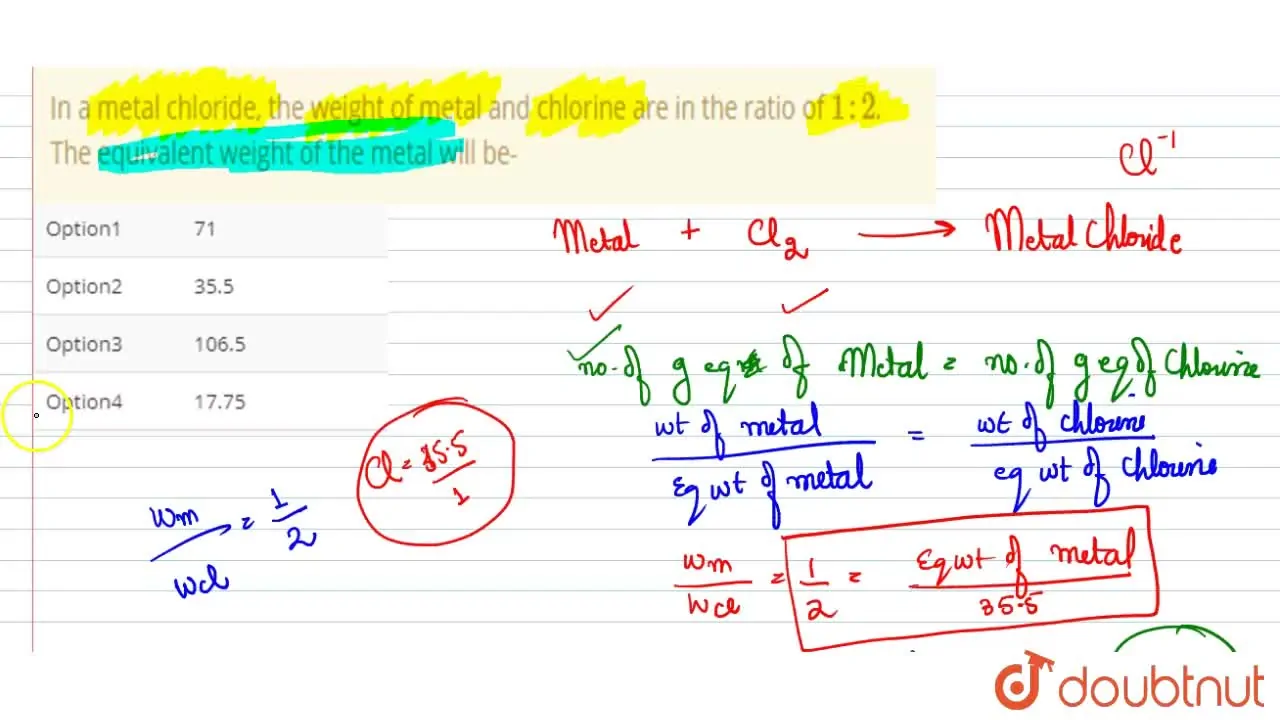 In a metal chloride, the weight of metal and chlorine are in the ratio of 1:2.
The equivalent weight of the metal will be-
Cl⁻¹
Option1 71
Option2 35.5
Option3 106.5
Option4 17.75
Metal + Cl₂ → Metal Chloride
no. of g eq of Metal = no. of g eq of Chlorine
wt of metal / Eq wt of metal = wt of chlorine / eq wt of Chlorine
Cl = 35.5 / 1
Wm / Wcl = 1 / 2
Wm / Wcl = 1 / 2 = Eq wt of metal / 35.5
doubtnut